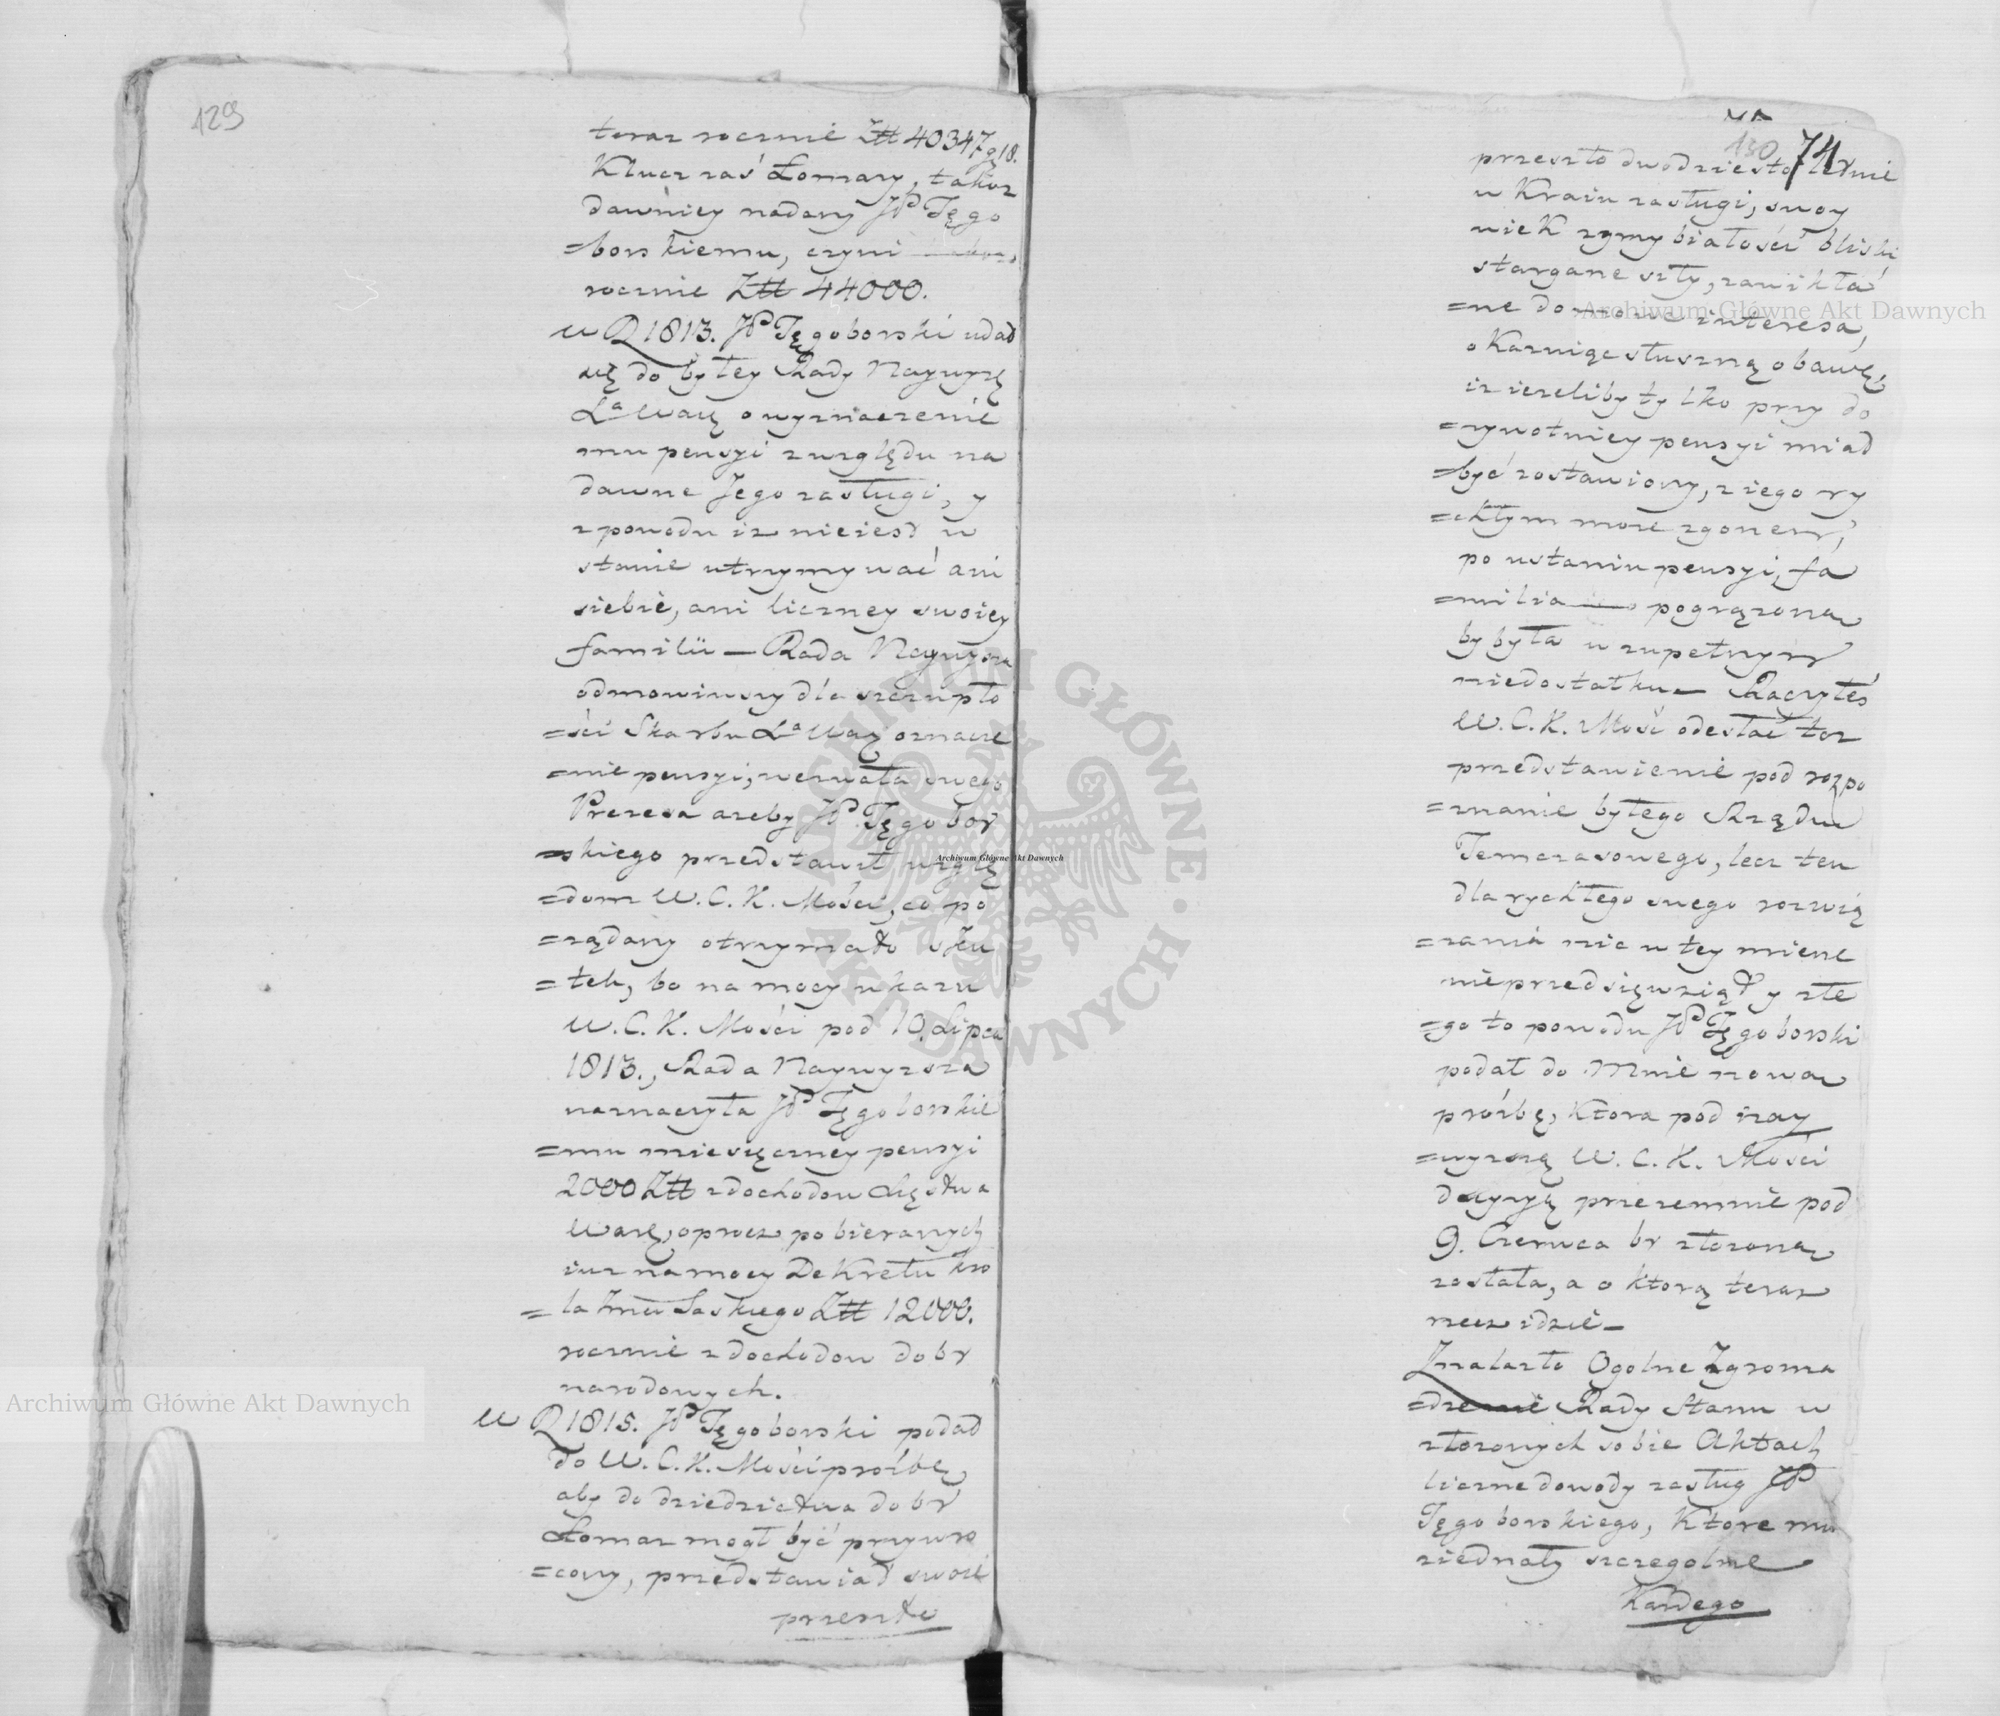 129
teraz rocznie Złł 40347 g 18.
Klucz zaś Łomazy, takoż
dawniey nadany JP Tęgo
=borskiemu, czyni
rocznie Złł 44000.
W R 1813. JP Tęgoborski udał
się do byłey Rady Naywyżę
Xa Warę o wyznaczenie
mu pensyi z względu na
dawne Jego zasługi, y
z powodu iż nieiest w
stanie utrzymywać ani
siebie, ani liczney swoiey
familii — Rada Naywyższa
odmowiwszy dla szczupło
=ści Skarbu Xa Warę oznacze
=nie pensyi, wezwała swego
Prezesa ażeby JP. Tęgobor
=skiego przedstawił wzglę
=dom W. C. K. Mości, co po
=żądany otrzymało sku
=tek, bo na mocy ukazu
W. C. K. Mości pod 10 Lipca
1813., Rada Naywyższa
naznaczyła JP Tęgoborskie
=mu miesięczney pensyi
2000 Złł z dochodow Xięstwa
Warę, oprocz pobieranych
iuz na mocy Dekretu Kro
=la Jmci Saskiego Złł 12000.
rocznie z dochodow dobr
narodowych.
W R 1815. JP Tęgoborski podał
do W. C. K. Mości prośbę,
aby do dziedzictwa dobr
Łomaz mogł być przywro
=cony, przedstawiał swoie
przeszło
130 74
przeszło dwódziesto letnie
w Kraiu zasługi, swoy
wiek zgrzybiałości bliski
stargane siły, zawikła
=ne domowe interesa,
okazuiąc słuszną obawę,
iż ieżeliby tylko przy do
=żywotniey pensyi miał
=być zostawiony, z iego ry
=chłym może zgonem,
po ustaniu pensyi, fa
=milia pogrążona
by była w zupełnym
niedostatku — Raczyłeś
W. C. K. Mość odesłać toż
przedstawienie pod rozpo
=znanie byłego Rządu
Temczasowego, lecz ten
dla rychłego swego rozwią
=zania nic w tey mierze
nieprzedsięwziął y z te
=go to powodu JP Tęgoborski
podał do Mnie nową
prośbę, ktora pod nay
=wyższą W. C. K. Mości
decyzyę przezemnie pod
9. Czerwca br złożoną
została, a o ktorą teraz
rzecz idzie —
Znalazło Ogolne Zgroma
=dzenie Rady Stanu w
złożonych sobie Aktach
liczne dowody zasług JP
Tęgoborskiego, Ktore mu
ziednały szczegolne
Każdego
Archiwum Główne Akt Dawnych
Archiwum Główne Akt Dawnych
Archiwum Główne Akt Dawnych
ARCHIWUM GŁÓWNE · AKT DAWNYCH ·